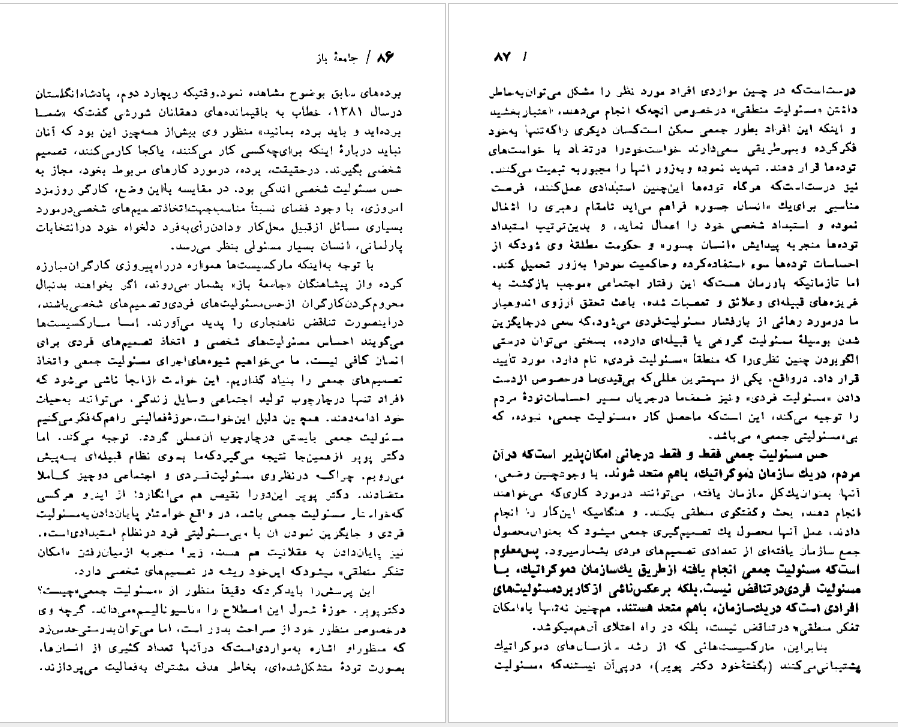 ۸۶ / جامعهٔ باز
برده‌های سابق بوضوح مشاهده نمود. وقتیکه ریچارد دوم، پادشاه انگلستان
درسال ۱۳۸۱، خطاب به باقیمانده‌های دهقانان شورشی گفت که «شما
برده‌اید و باید برده بمانید» منظور وی بیش از همه‌چیز این بود که آنان
نباید دربارهٔ اینکه برای‌چه‌کسی کار می‌کنند، یاکجا کار می‌کنند، تصمیم
شخصی بگیرند. درحقیقت، برده، درمورد کارهای مربوط بخود، مجاز به
حس مسئولیت شخصی اندکی بود. در مقایسه بااین وضع، کارگر روزمزد
امروزی، با وجود فضای نسبتاً مناسب جهت اتخاذ تصمیم‌های شخصی درمورد
بسیاری مسائل ازقبیل محل‌کار ودادن‌رأی‌به‌فرد دلخواه خود درانتخابات
پارلمانی، انسان بسیار مسئولی بنظر می‌رسد.
با توجه به‌اینکه مارکسیست‌ها همواره درراه‌پیروزی کارگران‌مبارزه
کرده واز پیشاهنگان «جامعهٔ باز» بشمار می‌روند، اگر بخواهند بدنبال
محروم‌کردن‌کارگران ازحس‌مسئولیت‌های فردی‌وتصمیم‌های شخصی‌باشند،
دراینصورت تناقض ناهنجاری را پدید می‌آورند. اما مارکسیست‌ها
می‌گویند احساس مسئولیت‌های شخصی و اتخاذ تصمیم‌های فردی برای
انسان کافی نیست، ما می‌خواهیم شیوه‌های‌اجرای مسئولیت جمعی و اتخاذ
تصمیم‌های جمعی را بنیاد گذاریم. این خواست ازاینجا ناشی می‌شود که
افراد تنها درچارچوب تولید اجتماعی وسایل زندگی، می‌توانند به‌حیات
خود ادامه‌دهند. همچنین دلیل این‌خواست، حوزهٔ‌فعالیتی راهم‌که‌فکرمی‌کنیم
مسئولیت جمعی بایستی درچارچوب آن‌عملی گردد. توجیه می‌کند. اما
دکتر پوپر ازهمین‌جا نتیجه می‌گیردکه‌ما بسوی نظام قبیله‌ای به‌پیش
می‌رویم. چراکه درنظروی مسئولیت‌فردی و اجتماعی دوچیز کاملا
متضادند. دکتر پوپر این‌دورا نقیض هم می‌انگارد؛ از اینرو هرکسی
که‌خواستار مسئولیت جمعی باشد، در واقع خواستار پایان‌دادن‌به‌مسئولیت
فردی و جایگزین نمودن آن با «بی‌مسئولیتی فرد درنظام استبدادی‌است.
نیز پایان‌دادن به عقلانیت هم هست، زیرا منجربه ازمیان‌رفتن «امکان
تفکر منطقی» میشودکه این‌خود ریشه در تصمیم‌های شخصی دارد.
این پرسش‌را بایدکردکه دقیقاً منظور از «مسئولیت جمعی»چیست؟
دکترپوپر، حوزهٔ شمول این اصطلاح را «ناسیونالیسم»می‌داند. گرچه وی
درخصوص منظور خود از صراحت بدور است، اما می‌توان‌بدرستی‌حدس‌زد
که منظوراو اشاره به‌مواردی‌است‌که درآنها تعداد کثیری از انسان‌ها،
بصورت تودهٔ متشکل‌شده‌ای، بخاطر هدف مشترك به‌فعالیت می‌پردازند.
/ ۸۷
درست‌است‌که در چنین مواردی افراد مورد نظر را مشکل می‌توان‌به‌خاطر
داشتن «مسئولیت منطقی» درخصوص آنچه‌که انجام می‌دهند، اعتباربخشید
و اینکه این افراد بطور جمعی ممکن است‌کسان دیگری راکه‌تنها به‌خود
فکرکرده وبهرطریقی سعی‌دارند خواست‌خودرا درتضاد با خواست‌های
توده‌ها قرار دهند. تهدید نموده وبه‌زور آنها را مجبوربه تبعیت می‌کنند.
نیز درست‌است‌که هرگاه توده‌ها این‌چنین استبدادی عمل‌کنند، فرصت
مناسبی برای‌یك «انسان جسور» فراهم می‌آید تامقام رهبری را اشغال
نموده و استبداد شخصی خود را اعمال نماید، و بدین‌ترتیب استبداد
توده‌ها منجربه پیدایش «انسان جسور» و حکومت مطلقهٔ وی شودکه از
احساسات توده‌ها سوء استفاده‌کرده وحاکمیت خودرا به‌زور تحمیل کند.
اما تازمانیکه باورمان هست‌که این رفتار اجتماعی «موجب بازگشت به
غریزه‌های قبیله‌ای وعلائق و تعصبات شده، باعث تحقق آرزوی اندوهبار
ما درمورد رهائی از بارفشار مسئولیت‌فردی می‌شود، که سعی درجایگزین
شدن بوسیلهٔ مسئولیت گروهی یا قبیله‌ای دارد»، بسختی می‌توان درستی
الگوبودن چنین نظری‌را که منطقاً «مسئولیت فردی» نام دارد، مورد تأیید
قرار داد. درواقع، یکی از مهمترین عللی‌که بی‌قیدی‌ما درخصوص ازدست
دادن «مسئولیت فردی» و نیز ضعف‌ما درجریان سیر احساسات‌تودهٔ مردم
را توجیه می‌کند، این است‌که ماحصل کار «مسئولیت جمعی» نبوده، که
بی‌«مسئولیتی جمعی» می‌باشد.
حس مسئولیت جمعی فقط و فقط درجائی امکان‌پذیر است‌که درآن
مردم، دریك سازمان دموکراتیك، باهم متحد شوند. با وجودچنین وضعی،
آنها بعنوان‌یك‌کل سازمان یافته، می‌توانند درمورد کاری‌که می‌خواهند
انجام دهند، بحث وگفتگوی منطقی بکنند. و هنگامیکه این‌کار را انجام
دادند، عمل آنها محصول یك تصمیم‌گیری جمعی میشود که بعنوان‌محصول
جمع سازمان یافته‌ای از تعدادی تصمیم‌های فردی بشمارمیرود. پس‌معلوم
است‌که مسئولیت جمعی انجام یافته ازطریق یك‌سازمان دموکراتیك، با
مسئولیت فردی‌درتناقض نیست. بلکه برعکس‌ناشی ازکاربردمسئولیت‌های
افرادی است‌که دریك‌سازمان، باهم متحد هستند. هم‌چنین نه‌تنها با«امکان
تفکر منطقی» درتناقض نیست، بلکه در راه اعتلای آن‌هم‌میکوشد.
بنابراین، مارکسیست‌هائی که از رشد سازمان‌های دموکراتیك
پشتیبانی‌می‌کنند (بگفتهٔ‌خود دکتر پوپر)، درپی‌آن نیستندکه «مسئولیت